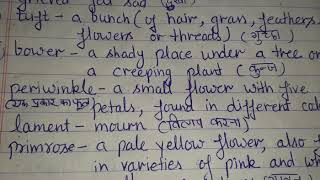 grieved felt sad (दुखी)
tuft - a bunch (of hair, grass, feathers
flowers or threads)
bower - a shady place under a tree or
a creeping plant (कुन्ज)
periwinkle - a small flower with five
(एक प्रकार का फूल) petals, found in different col
lament - mourn (विलाप करना)
primrose - a pale yellow flower, also f
in varieties of pink and wh